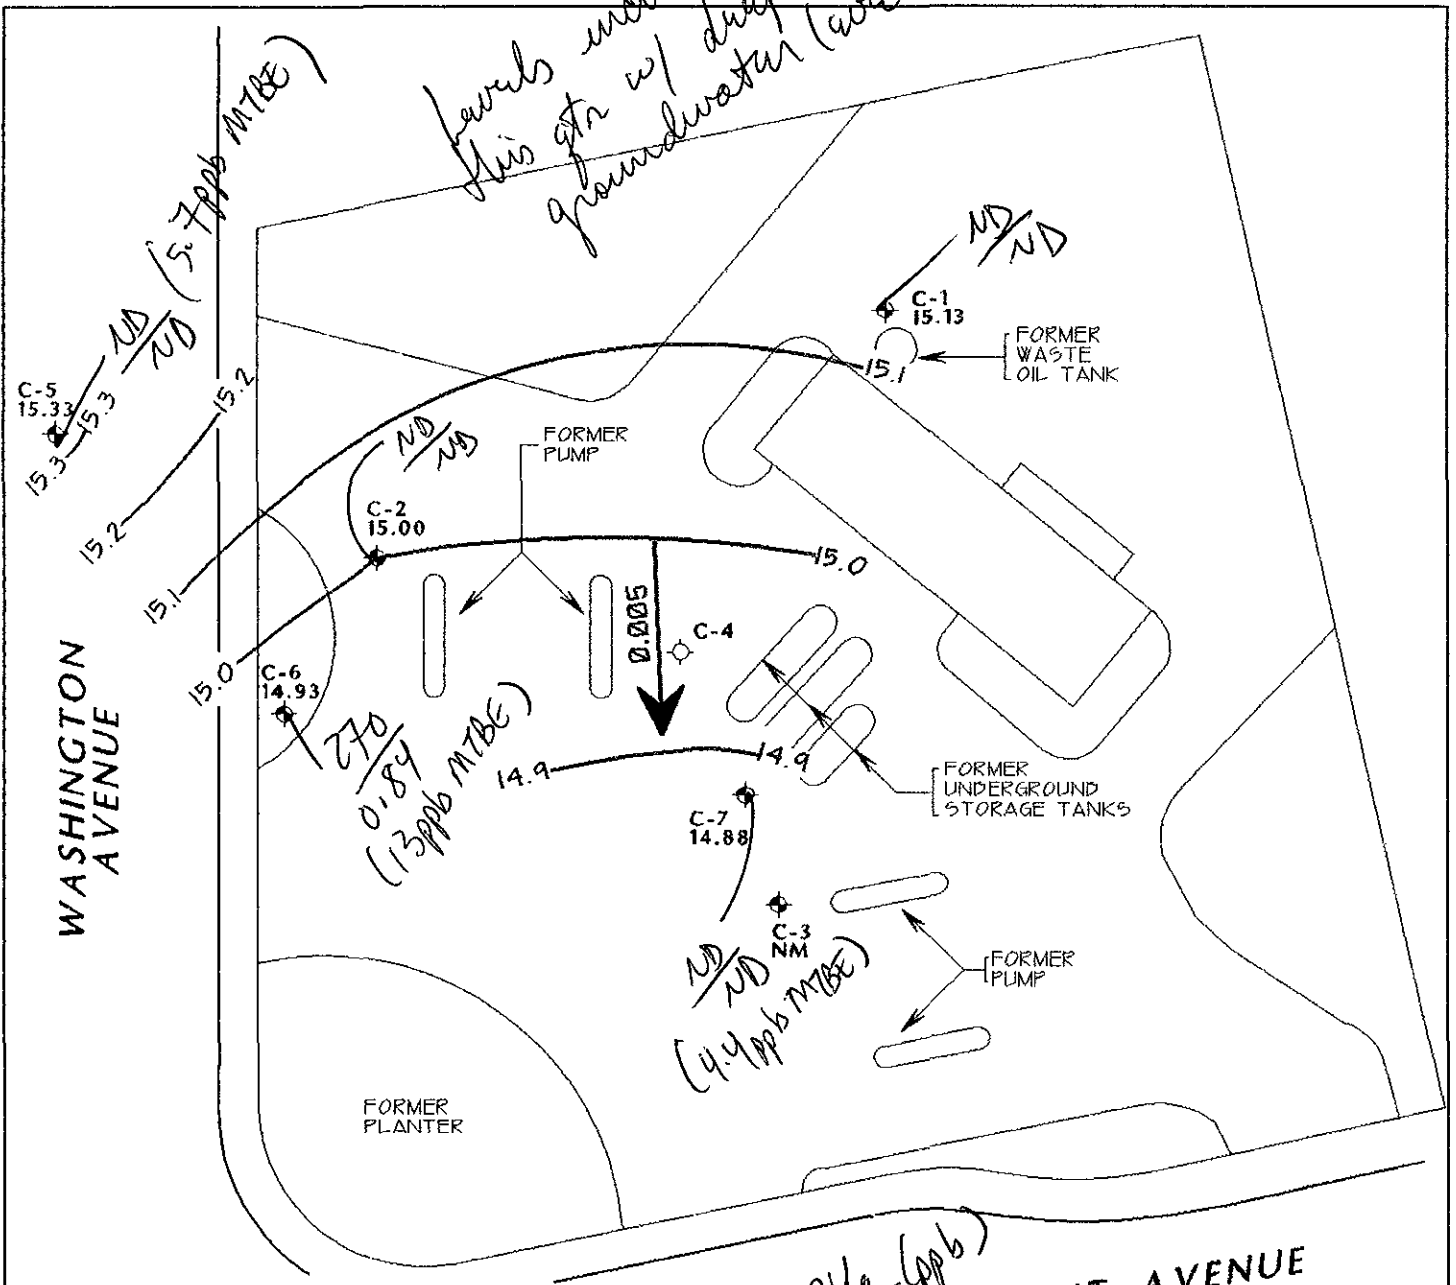 this qtr w/
groundwater
(5.7ppb MTBE)
ND/ND
ND/ND
C-1
15.13
FORMER
WASTE
OIL TANK
C-5
15.33
15.3
15.3
15.2
15.2
15.1
15.1
ND/ND
FORMER
PUMP
C-2
15.00
15.0
15.0
0.005
C-4
C-6
14.93
270/0.84
(13ppb MTBE)
14.9
14.9
FORMER
UNDERGROUND
STORAGE TANKS
C-7
14.88
C-3
NM
ND/ND
(4.4ppb MTBE)
FORMER
PUMP
FORMER
PLANTER
WASHINGTON
AVENUE
(ppb)
AVENUE